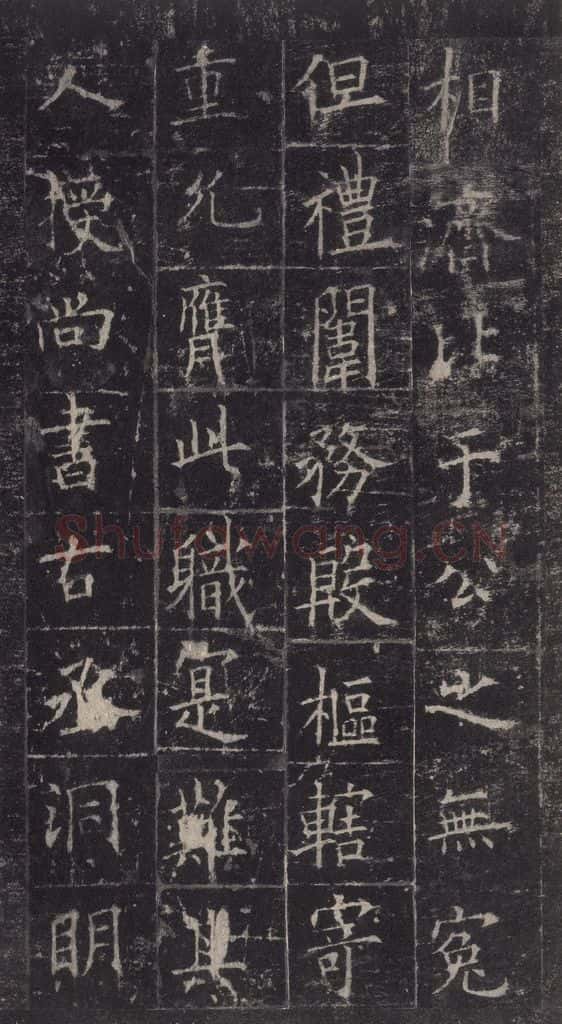 相濟比于公之無寃
但禮闈務殷樞轄寄
重允膺此職寔難其
人授尚書右丞洞明
Shufawang.CN